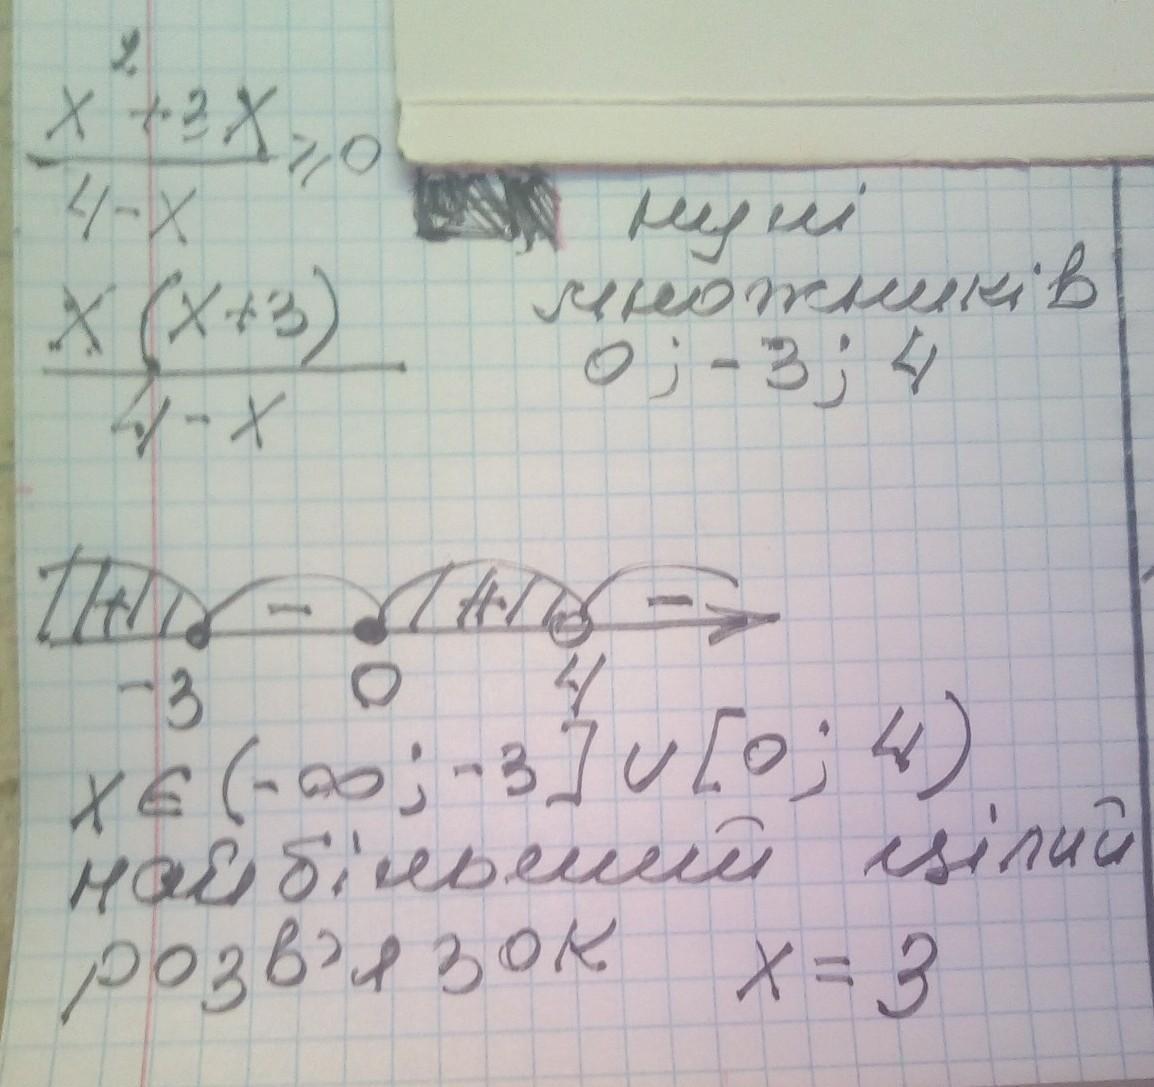 x² + 3x / 4 - x ≥ 0
x (x+3) / 4 - x
нулі
множників
0 ; - 3 ; 4
+ - + -
-3 0 4
x ∈ (-∞ ; -3] ∪ [0 ; 4)
найбільший цілий
розв'язок x = 3